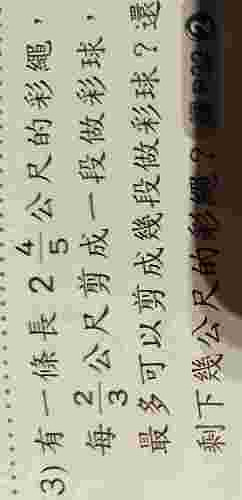 3) 有一條長 2 4/5 公尺的彩繩，
每 2/3 公尺剪成一段做彩球，
最多可以剪成幾段做彩球？還
剩下幾公尺的彩繩？